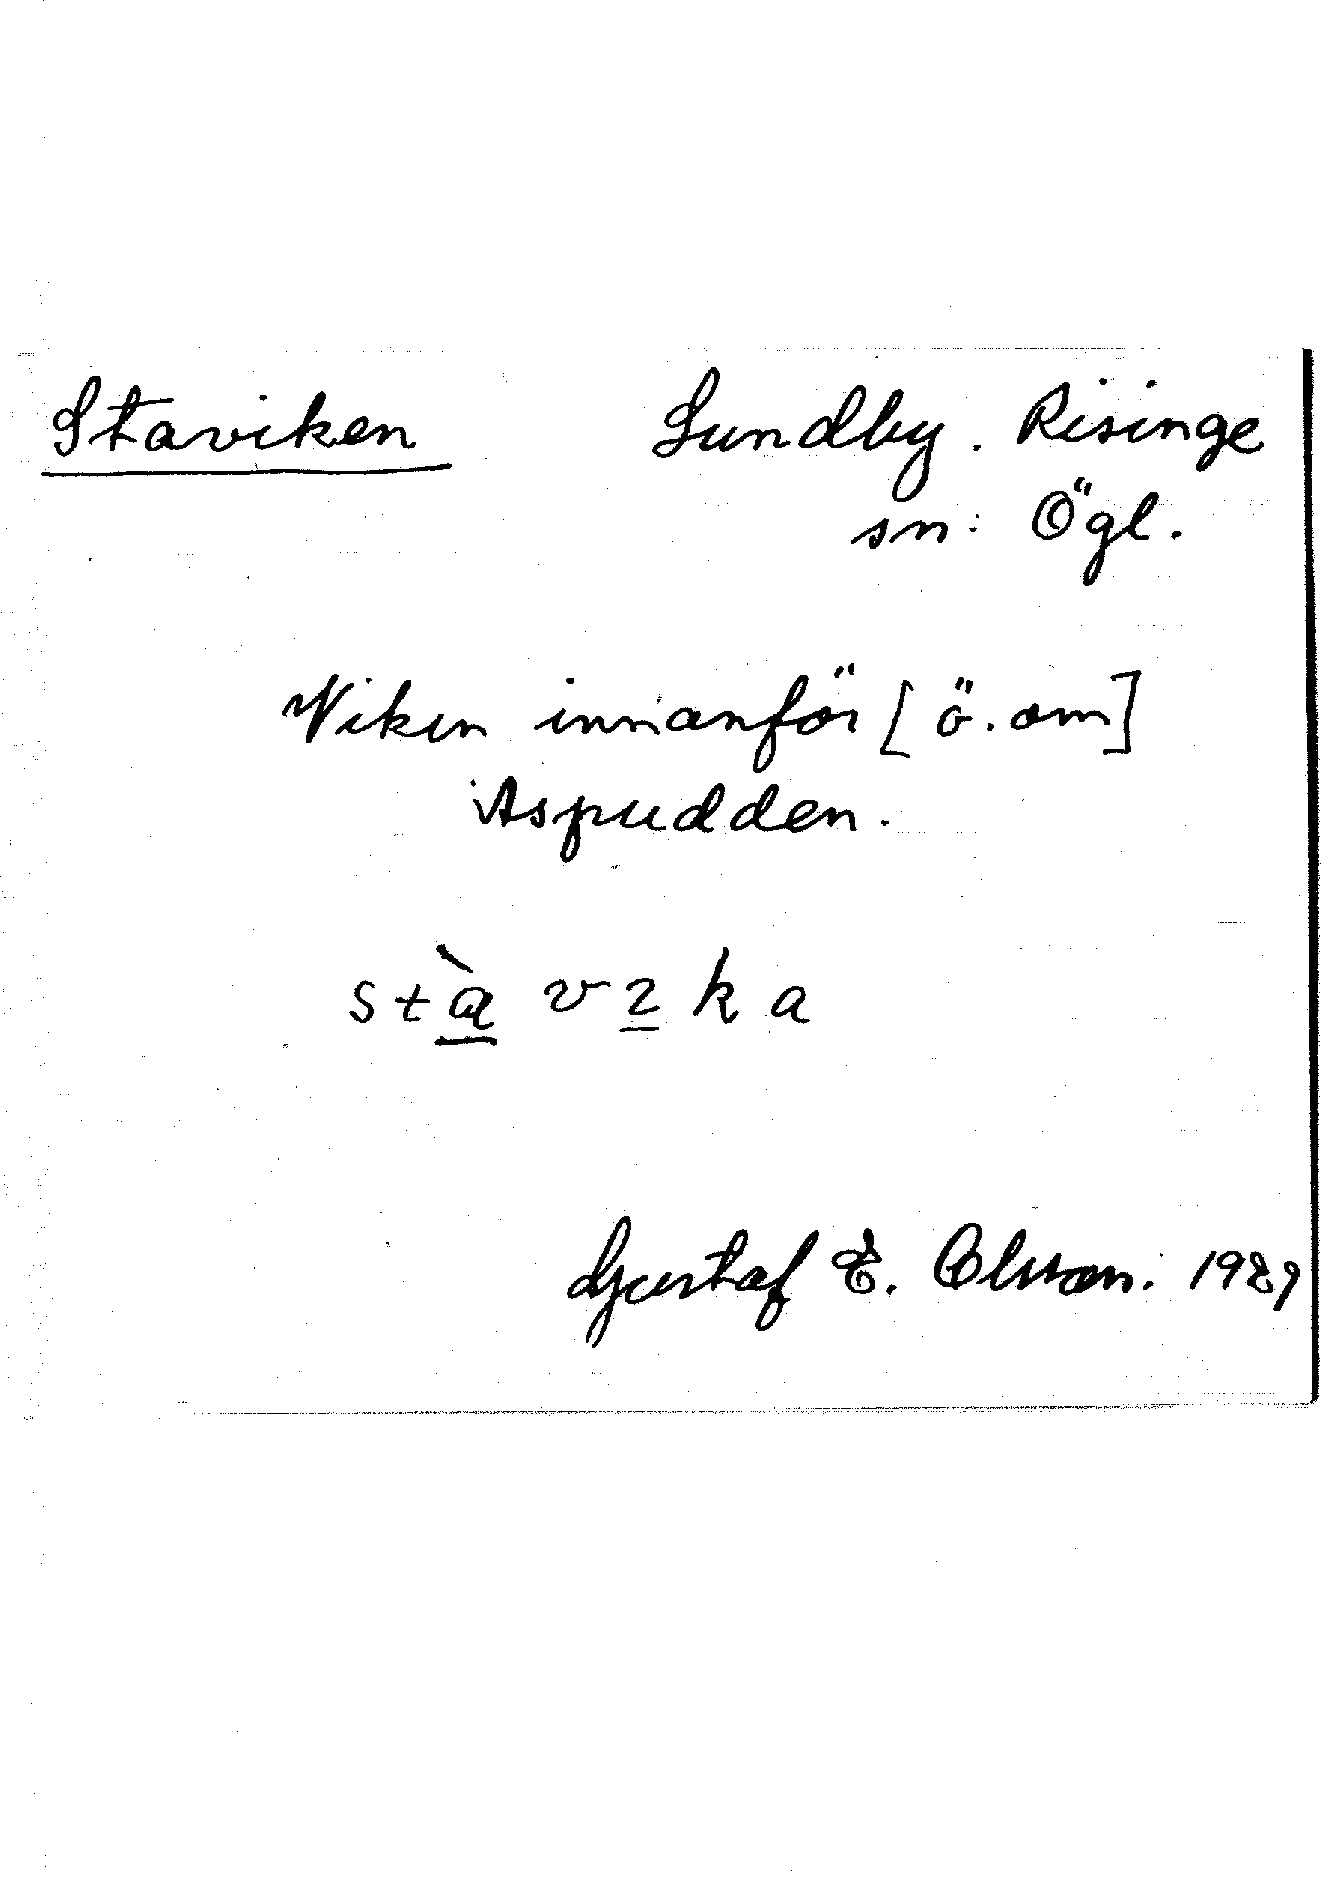 Staviken Lundby. Risinge
sn. Ögl.
Viken innanför [ö. om]
Aspudden.
stà̱ v ɩ̱ k a
Gustaf E. Olsson. 1929